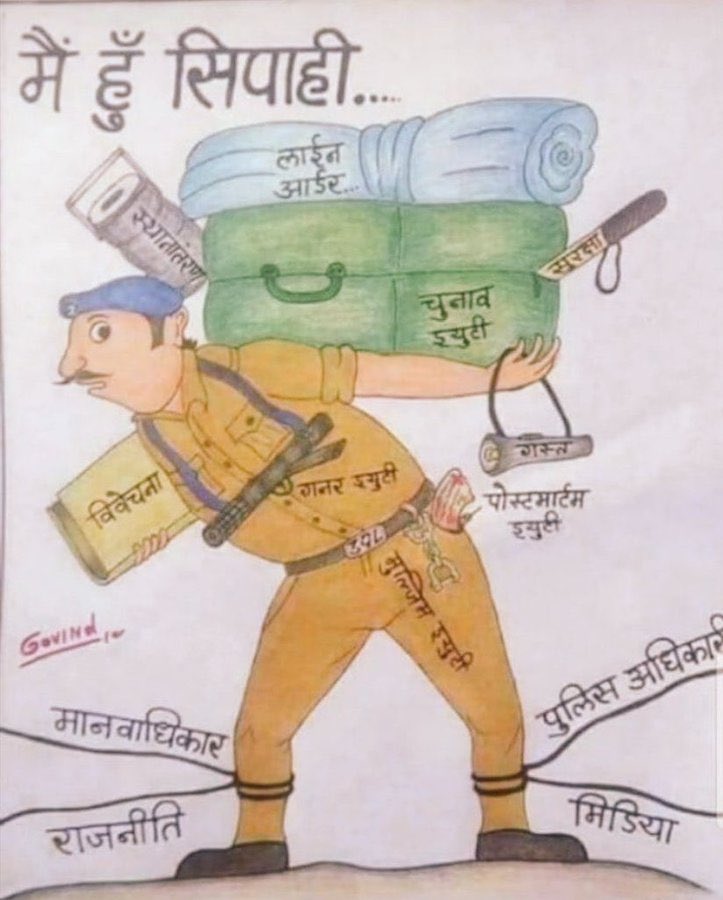 मैं हुँ सिपाही.....
लाईन
आर्डर...
स्थानांतरण
सुरक्षा
चुनाव
ड्युटी
गस्त
विवेचना
गनर ड्युटी
पोस्टमार्टम
ड्युटी
मुल्जिम ड्युटी
GOVIND
मानवाधिकार
पुलिस अधिकारी
राजनीति
मिडिया